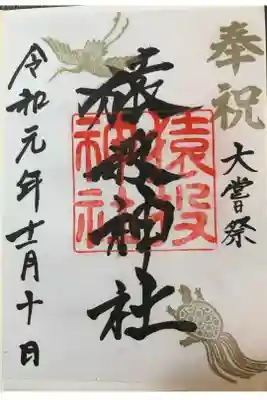 奉祝
大嘗祭
猿投神社
猿投
神社
令和元年十二月十日